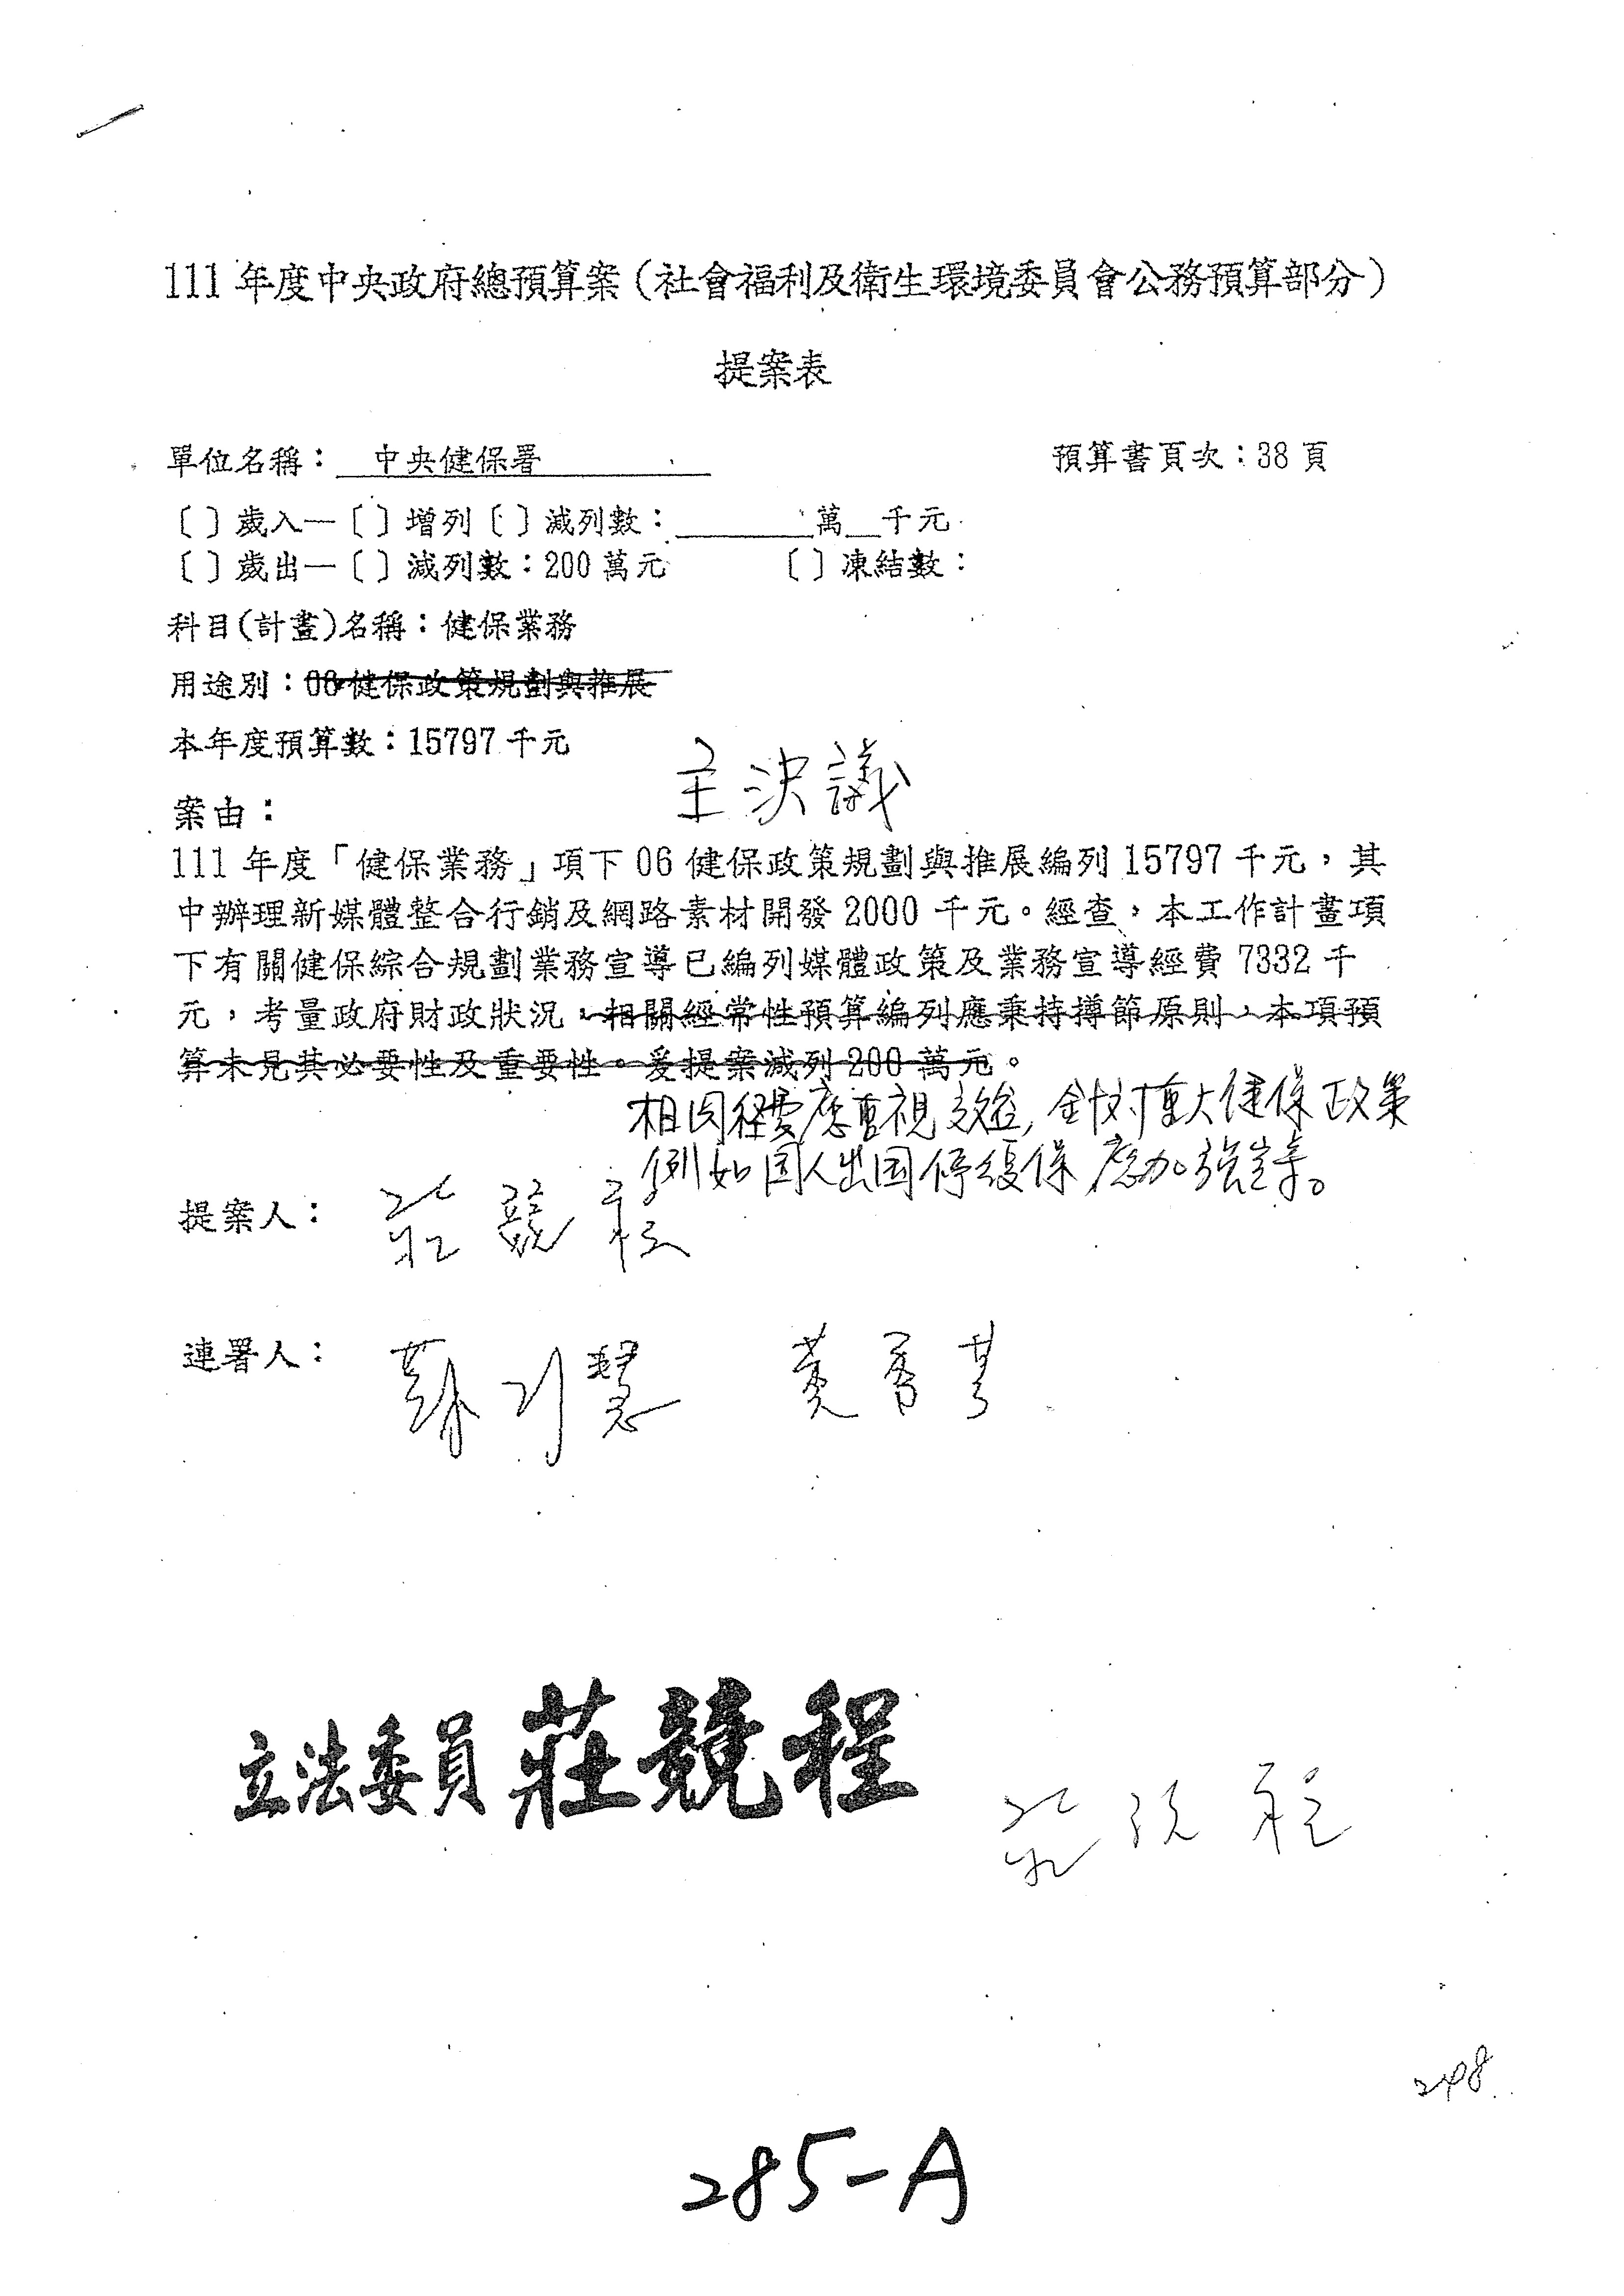 111 年度中央政府總預算案(社會福利及衛生環境委員會公務預算部分)
提案表
單位名稱： 中央健保署 預算書頁次：38 頁
〔 〕歲入—〔 〕增列〔 〕減列數：＿＿＿萬＿千元
〔 〕歲出—〔 〕減列數：200 萬元 〔 〕凍結數：
科目(計畫)名稱：健保業務
用途別：06 健保政策規劃與推展
本年度預算數：15797 千元
主決議
案由：
111 年度「健保業務」項下 06 健保政策規劃與推展編列 15797 千元，其
中辦理新媒體整合行銷及網路素材開發 2000 千元。經查，本工作計畫項
下有關健保綜合規劃業務宣導已編列媒體政策及業務宣導經費 7332 千
元，考量政府財政狀況，相關經常性預算編列應秉持撙節原則，本項預
算未見其必要性及重要性。爰提案減列 200 萬元。
相関経費應重視效益, 針対重大健保政策
例如国人出国停復保應加強宣導。
提案人： 莊競程
連署人： 蘇巧慧 黃秀芳
立法委員 莊競程
莊競程
248
285-A